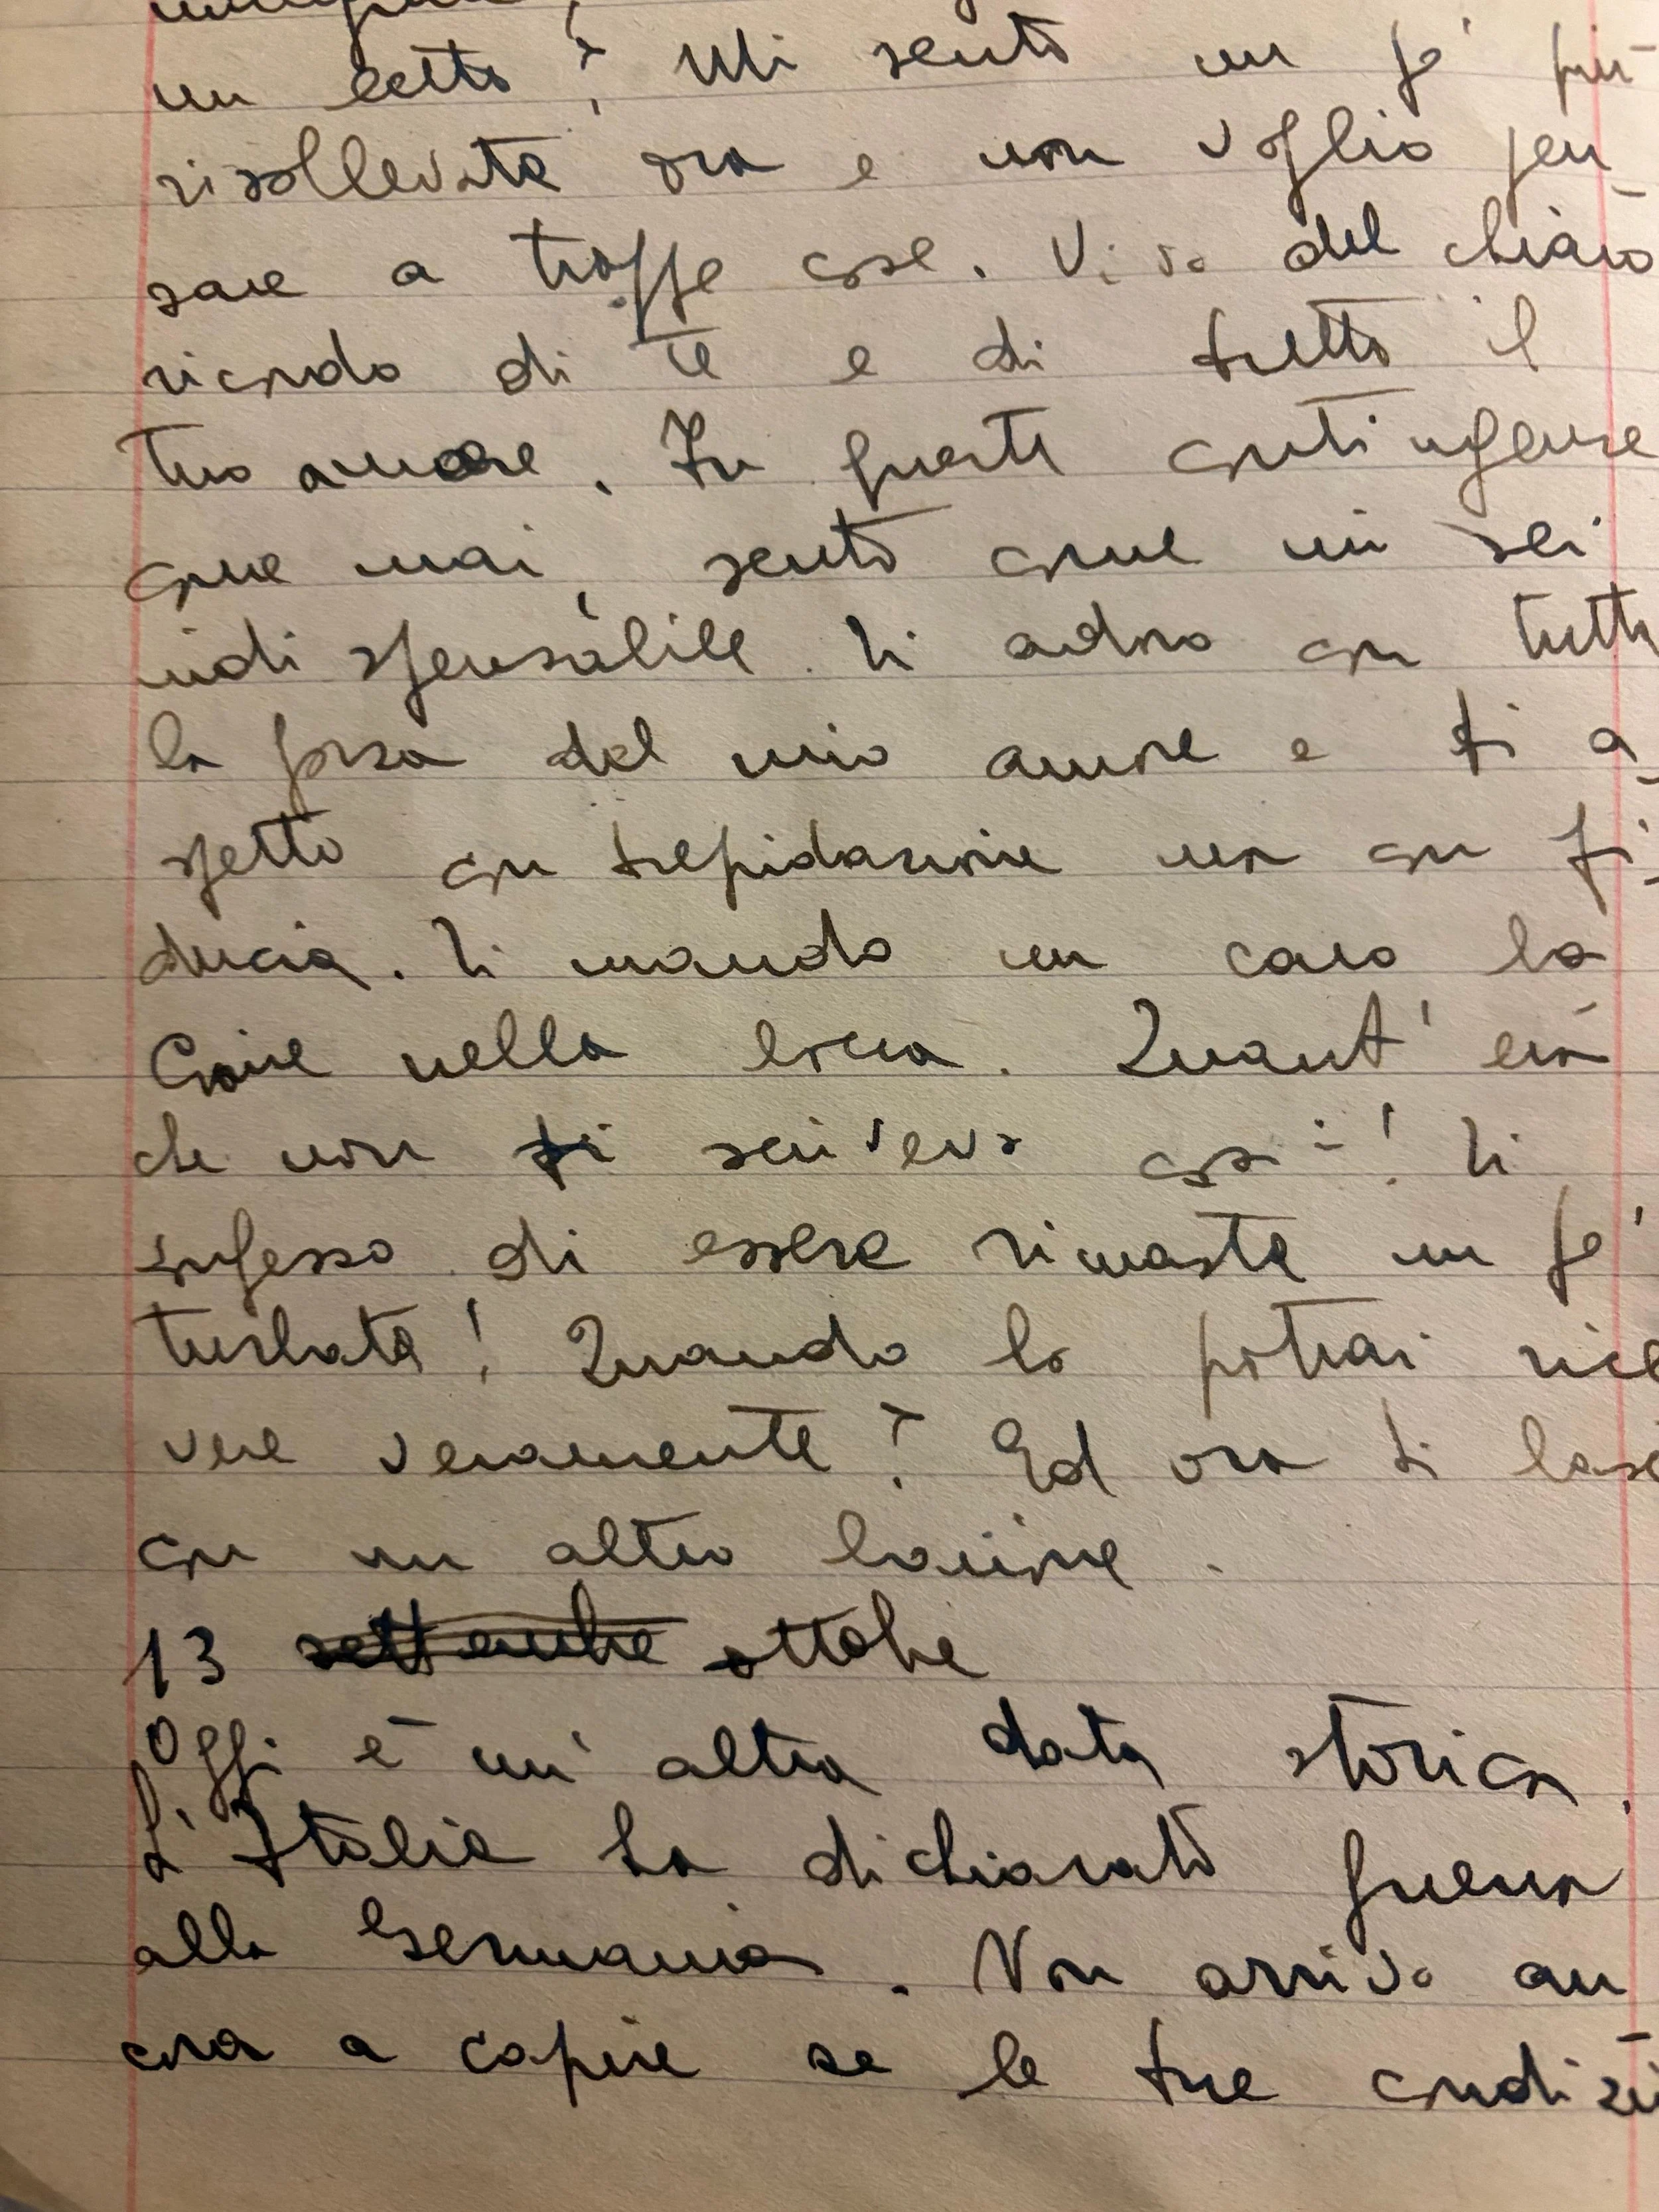 un letto? Mi sento un po' più
risollevata ora e non voglio pen
sare a troppe cose. Vivo del chiaro
ricordo di te e di tutto il
tuo amore. In queste contingenze
come mai, sento come mi sei
indispensabile. Ti adoro con tutta
la forza del mio amore e ti a
spetto con trepidazione ma con fi
ducia. Ti mando un caro ba
cione nella bocca. Quant'era
che non ti scrivevo così! Ti
confesso di essere rimasta un po'
turbata! Quando lo potrai rice
vere veramente? Ed ora ti lasc
con un altro bacione.
13 settembre ottobre
Oggi è un'altra data storica.
L'Italia ha dichiarato guerra
alla Germania. Non arrivo an
cora a capire se le tue condizi